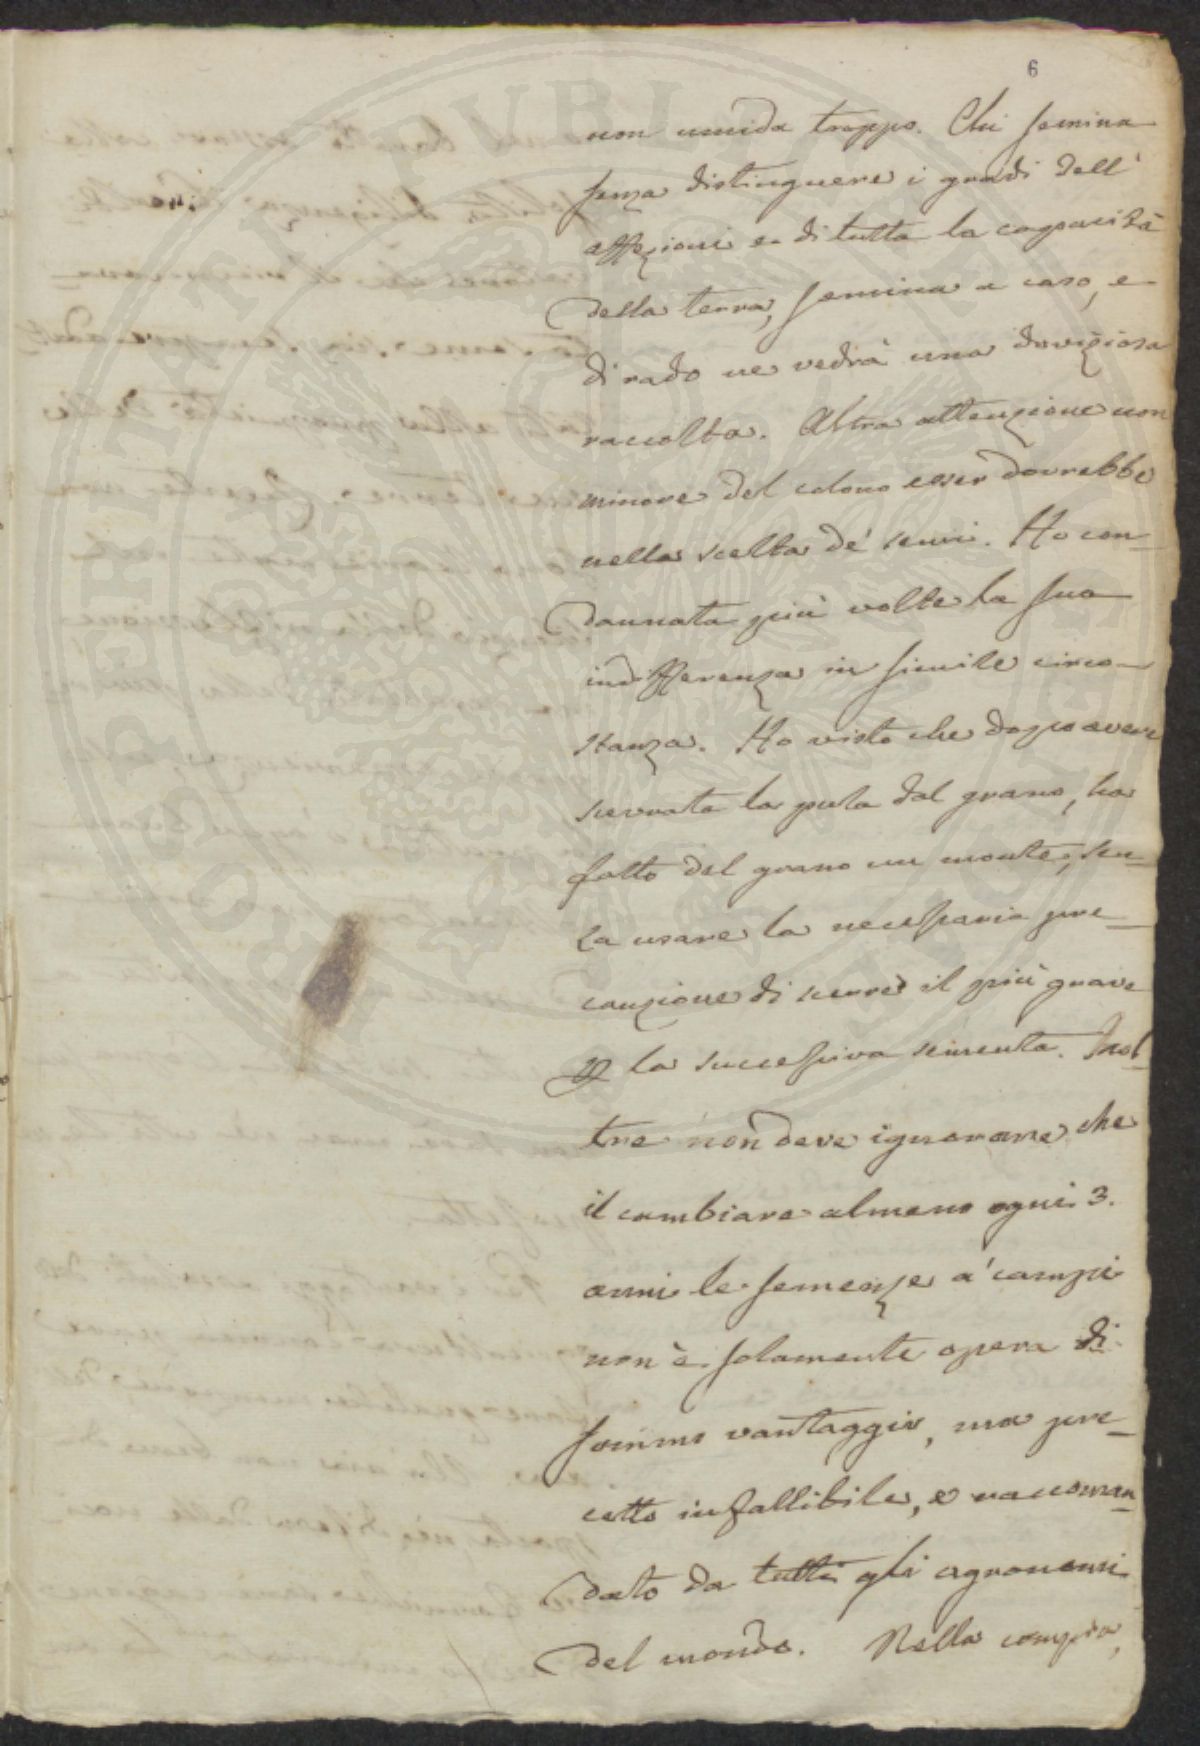 6
non umida troppo. Chi semina
senza distinguere i gradi dell'
affezioni e di tutta la capacità
della terra, semina a caso, e
di rado ne vedrà una doviziosa
raccolta. Altra attenzione non
minore del colono esser dovrebbe
nella scelta de' semi. Ho con-
dannata più volte la sua
indifferenza in simile circo-
stanza. Ho visto che dopo avere
scevrata la pula dal grano, ha
fatto del grano un monte, sen-
za usare la necessaria pre-
cauzione di scerre il più grave
p la successiva sementa. Inol-
tre non deve ignorare che
il cambiare almeno ogni 3.
anni le semenze a' campi
non è solamente opera di
sommo vantaggio, ma pre-
cetto infallibile, e raccoman-
dato da tutti gli agronomi
del mondo. Nella compra,